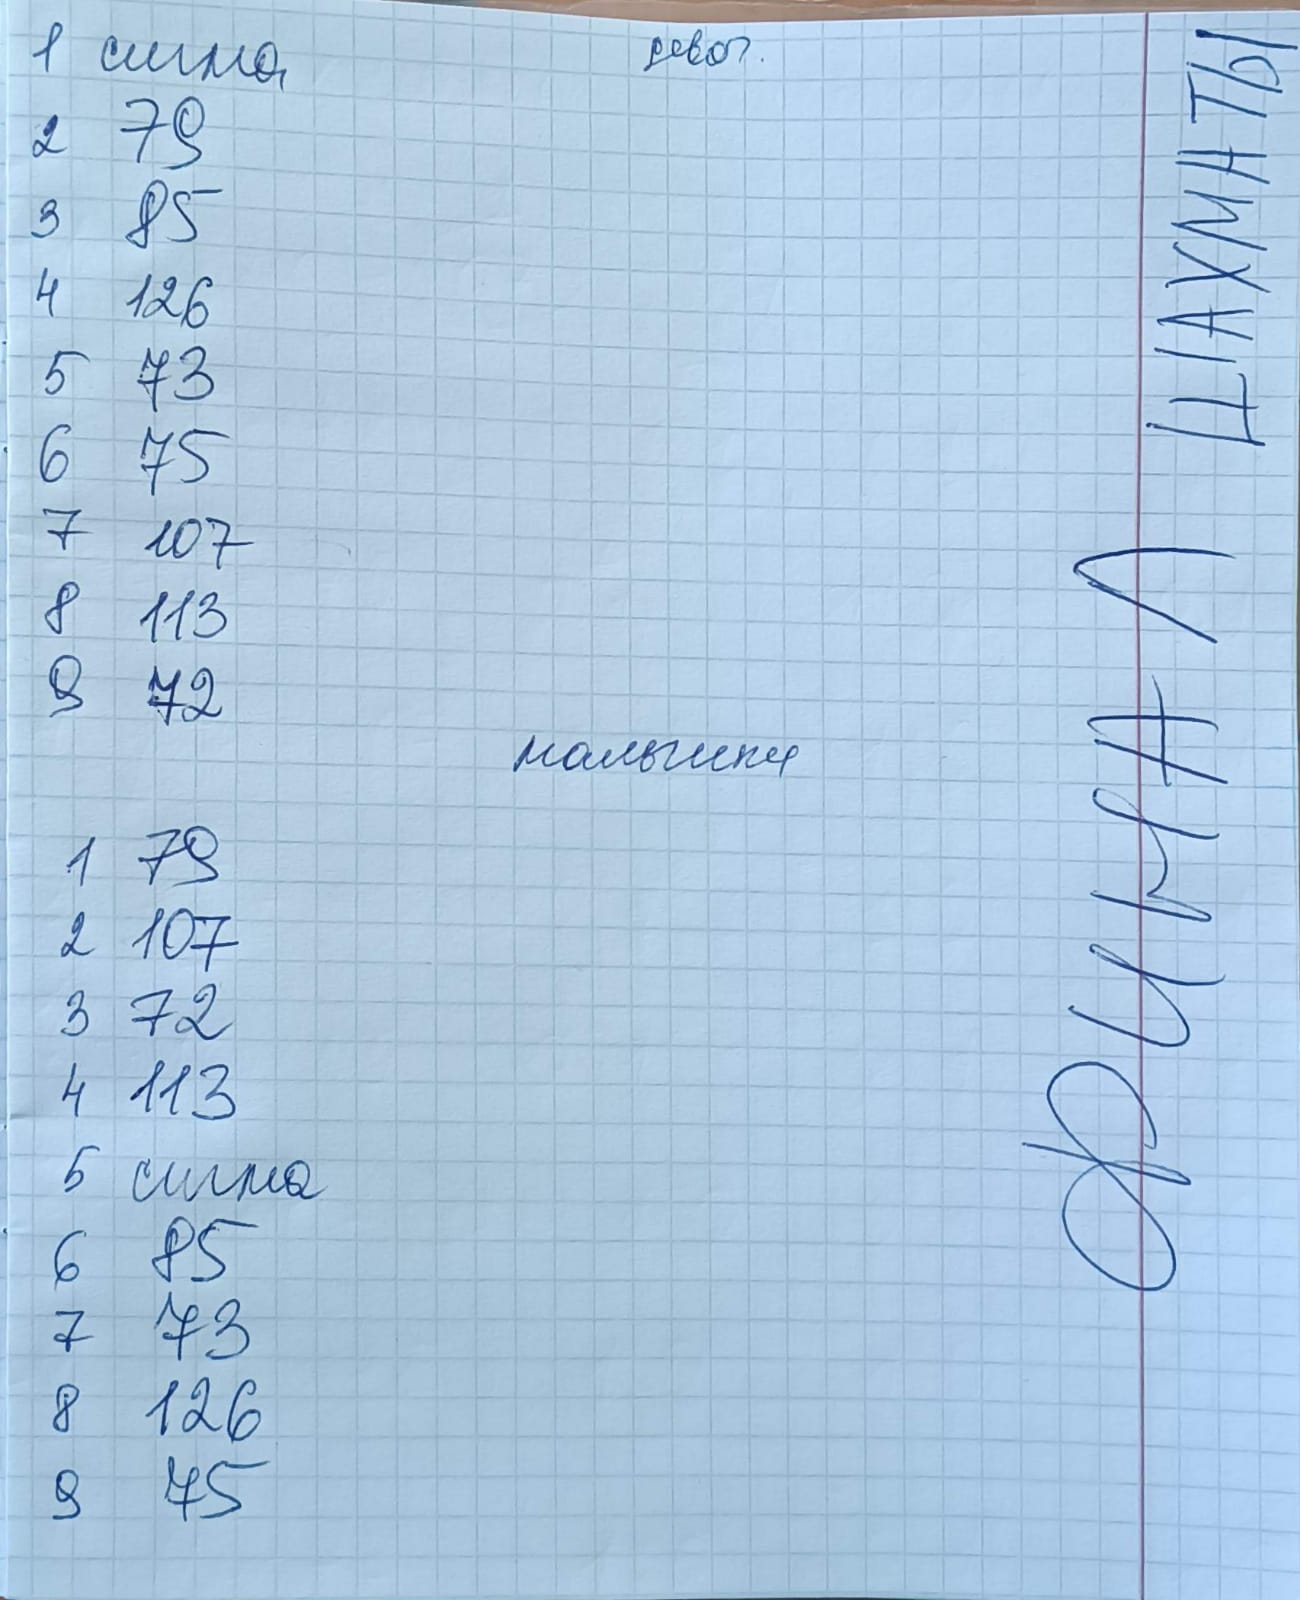 1 сигма девоч.
2 79
3 85
4 126
5 73
6 75
7 107
8 113
9 72
мальчики
1 79
2 107
3 72
4 113
5 сигма
6 85
7 73
8 126
9 75
ФИНАЛ ШАХМАТЫ